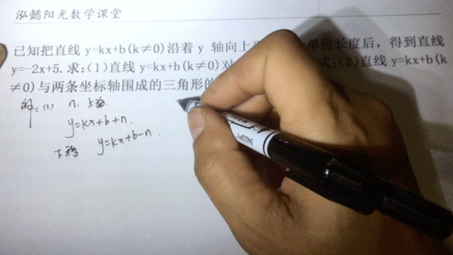 泓懿阳光数学课堂
已知把直线 y=kx+b(k≠0)沿着 y 轴向上 单位长度后，得到直线
y=-2x+5.求:(1)直线 y=kx+b(k≠0) 式;(2)直线 y=kx+b(k
≠0)与两条坐标轴围成的三角形的
解：(1) n. 上移
y=kx+b+n.
下移 y=kx+b-n.